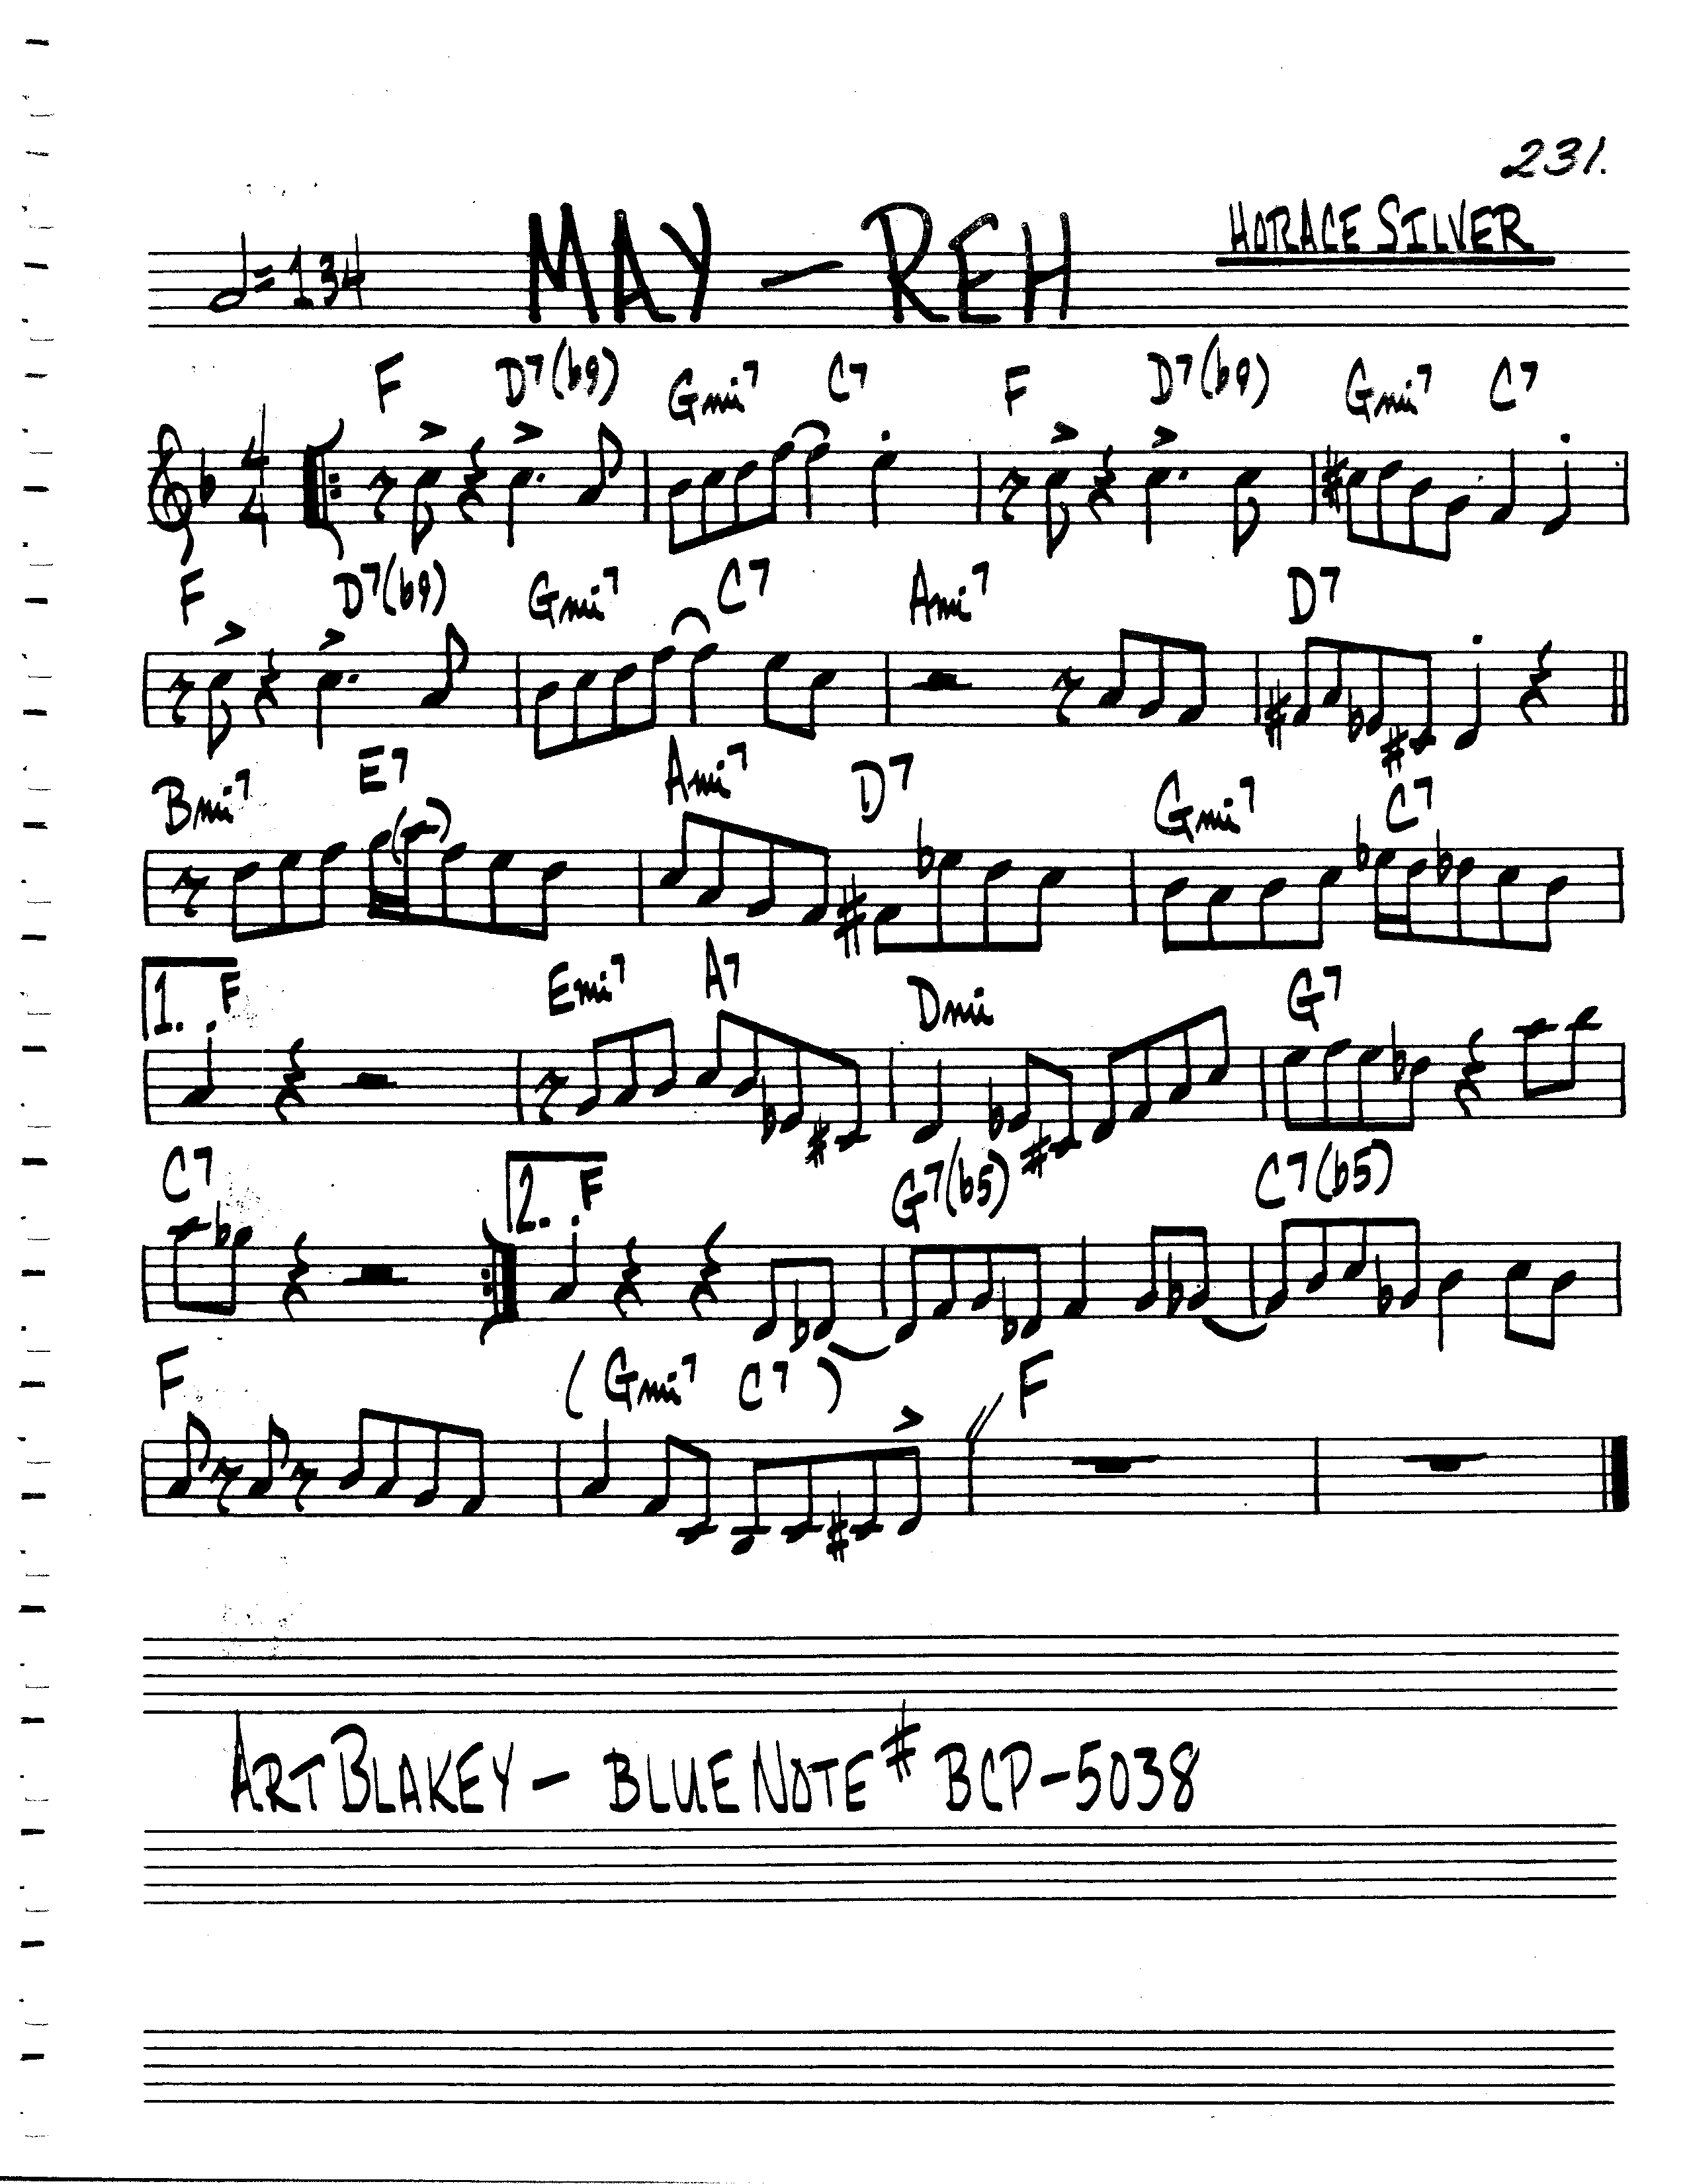 231.
HORACE SILVER
𝅗𝅥=134 MAY-REH
F D7(b9) Gmi7 C7 F D7(b9) Gmi7 C7
4
4
F D7(b9) Gmi7 C7 Ami7 D7
Bmi7 E7 Ami7 D7 Gmi7 C7
1. F Emi7 A7 Dmi G7
C7 2. F G7(b5) C7(b5)
F (Gmi7 C7) F
ART BLAKEY - BLUE NOTE # BCP-5038